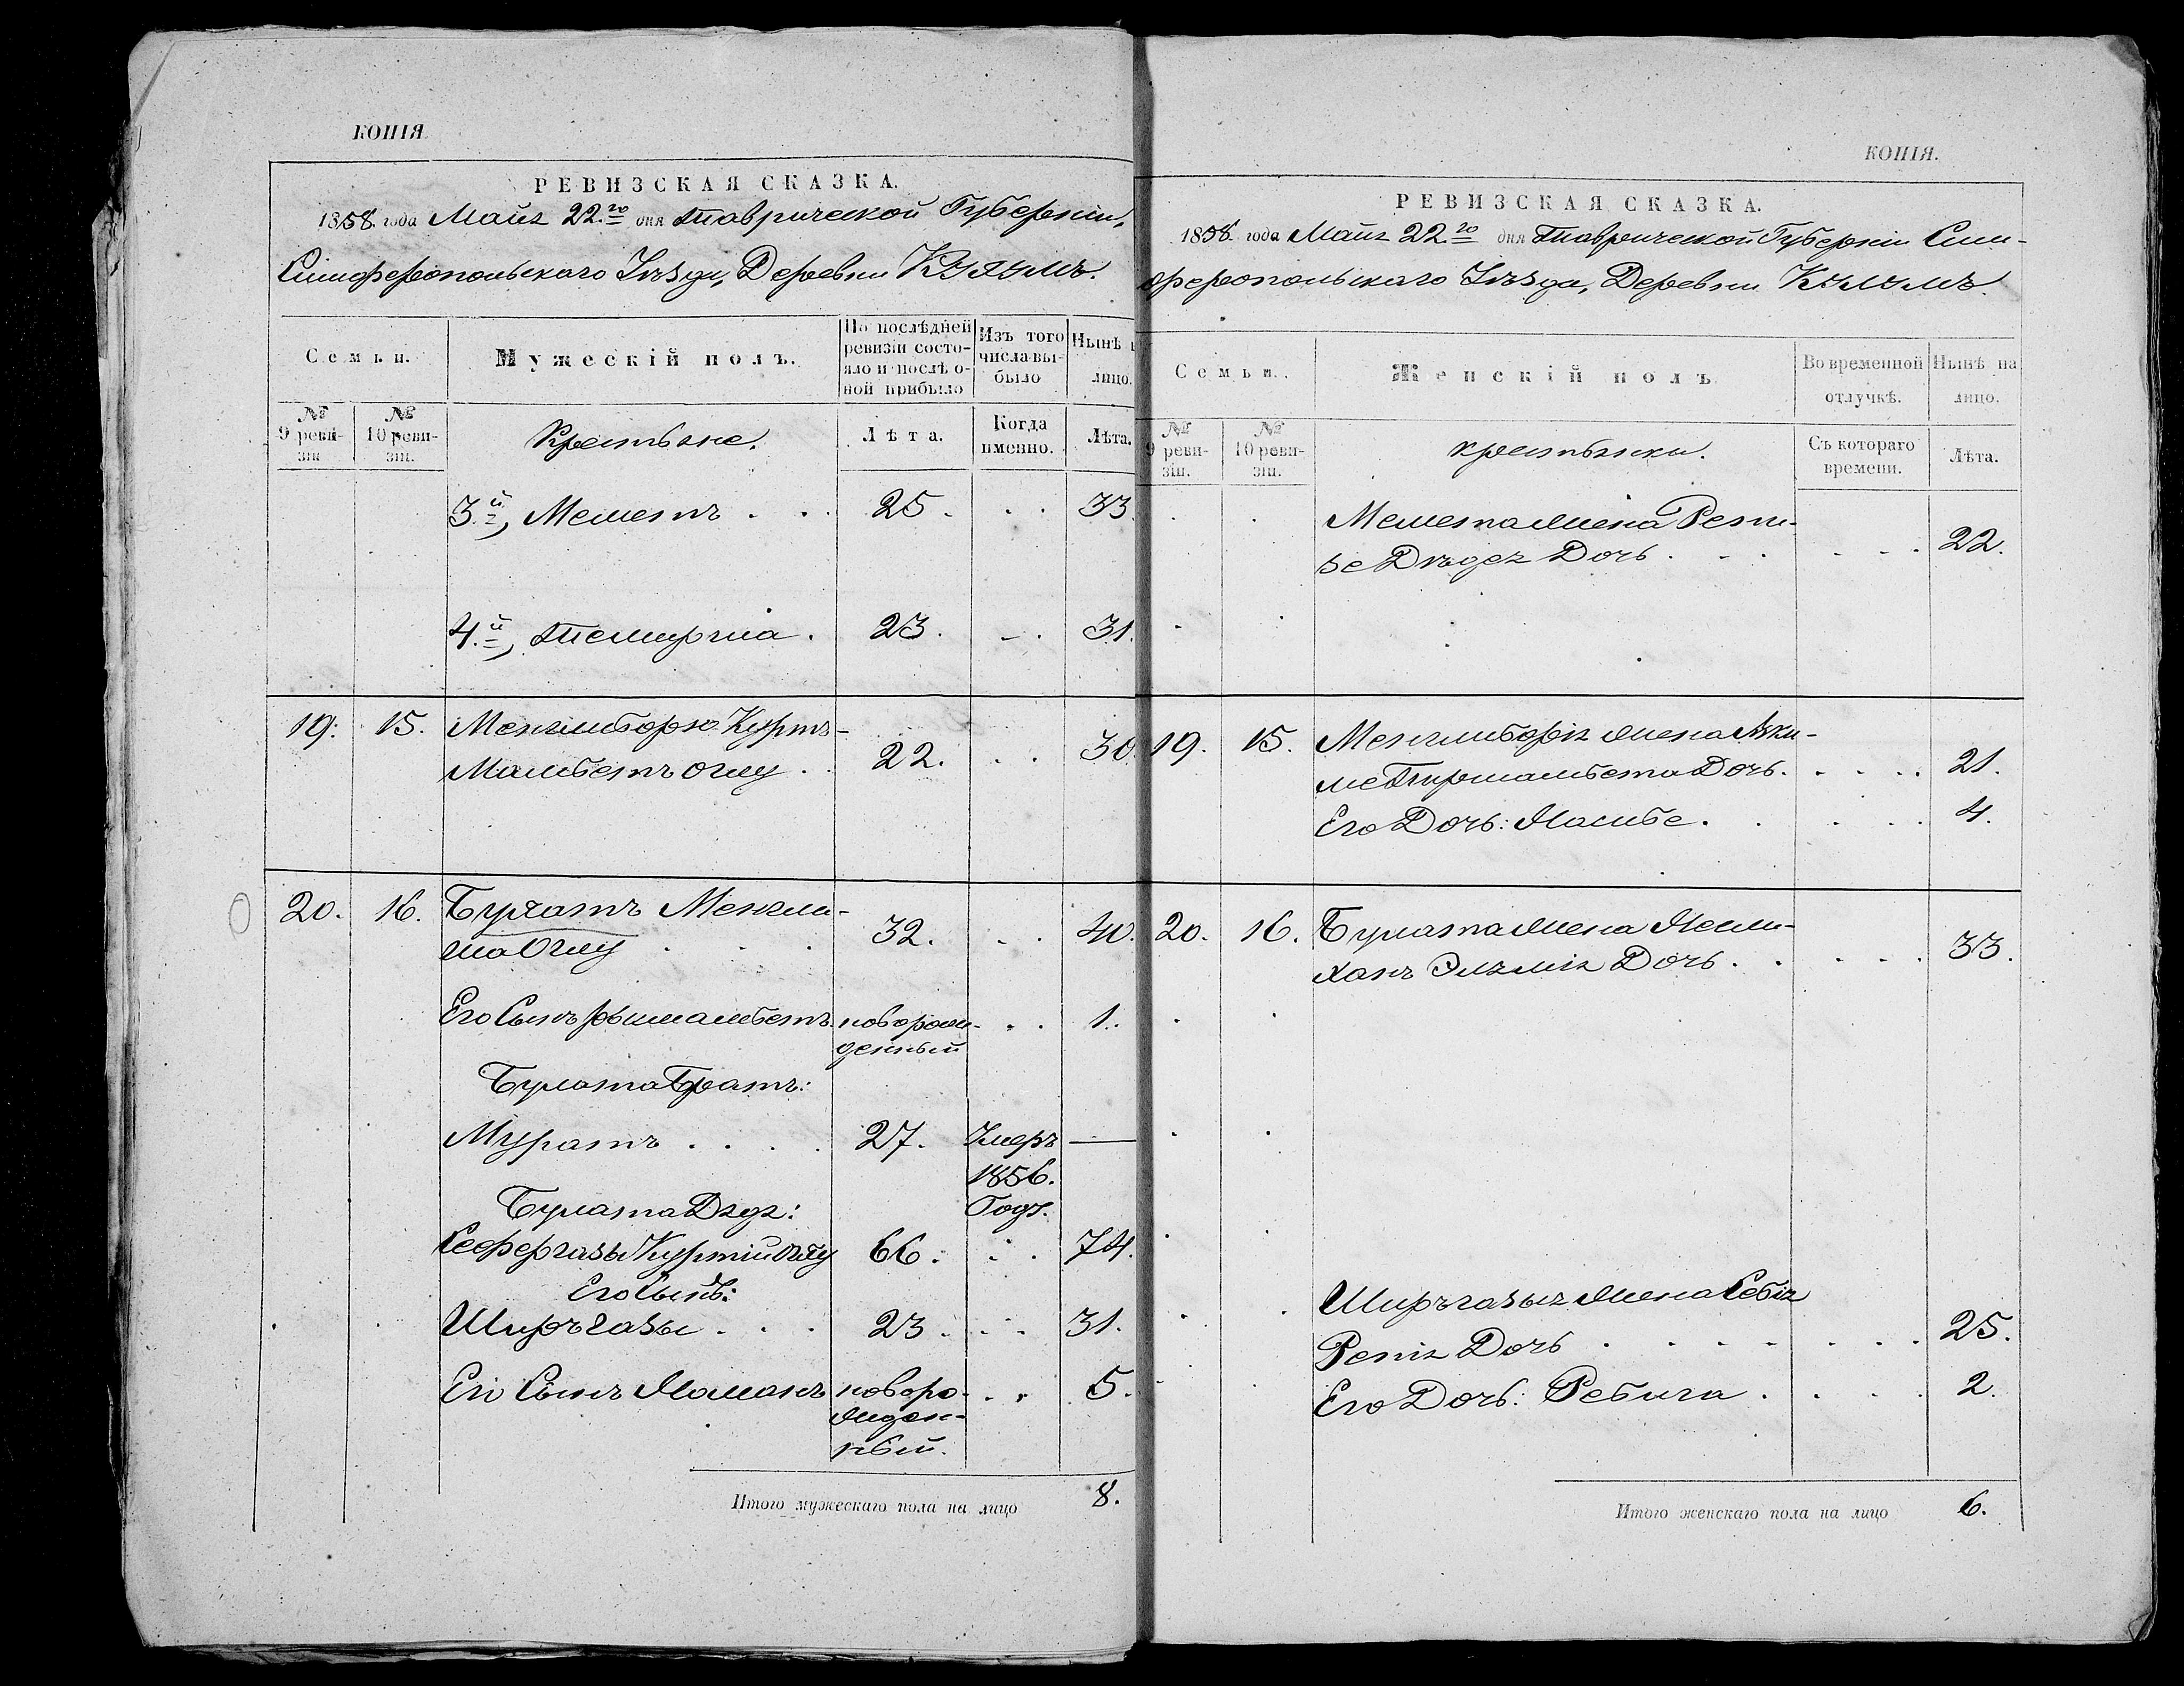 КОПІЯ
РЕВИЗСКАЯ СКАЗКА.
1858. года Маія 22.го дня Таврической Губерніи,
Симферопольскаго Уѣзда, Деревни
Семьи.
Мужескій полъ.
По послѣдней
ревизіи состо-
яло и послѣ о-
ной прибыло
Изъ того
числа вы-
было
Нынѣ
лицо.
№
9 реви-
зіи
№
10 реви-
зіи.
Крестьяне.
Лѣта.
Когда
именно.
Лѣта.
3.й, Меметъ . . . 25 . . . 33.
4.й, Темирша . 23. . . 31.
19. 15. Менглиборю Куртъ-
Мамбетъ Оглу . . 22. . . 30
20. 16. Булатъ Менгли-
ша Оглу . . . 32. . . 40.
Его Сынъ новорож- . . 1.
денный
Булата Братъ:
Муратъ . . . . 27. Умеръ —
1856.
Годъ.
Булата Дядя:
Сеферъгазы Куртій Оглу 66. . . 74.
Его Сынъ:
Ширъгазы . . . 23. . . 31.
Его Сынъ новоро- . . 5.
жден-
ный.
Итого мужескаго пола на лицо 8.
КОПІЯ.
РЕВИЗСКАЯ СКАЗКА.
1858. года Маія 22го дня Таврической Губерніи Сим-
феропольскаго Уѣзда, Деревни
Семьи.
Женскій полъ
Во временной
отлучкѣ.
Нынѣ на
лицо.
№
9 реви-
зіи.
№
10 реви-
зіи.
крестьянки.
Съ котораго
времени.
Лѣта.
Мемета жена
Дочь . . . . . . 22.
19. 15. Менглиборія жена Аки-
ме Пирмамбета Дочь. . . . . 21.
Его Дочь: . . . . . 4.
20. 16. Булата жена Мели-
ханъ Дочь. . . . . . 33.
Ширъгазыя жена Себія
Дочь . . . . . . . 25.
Его Дочь: Ребига . . . . 2.
Итого женскаго пола на лицо 6.